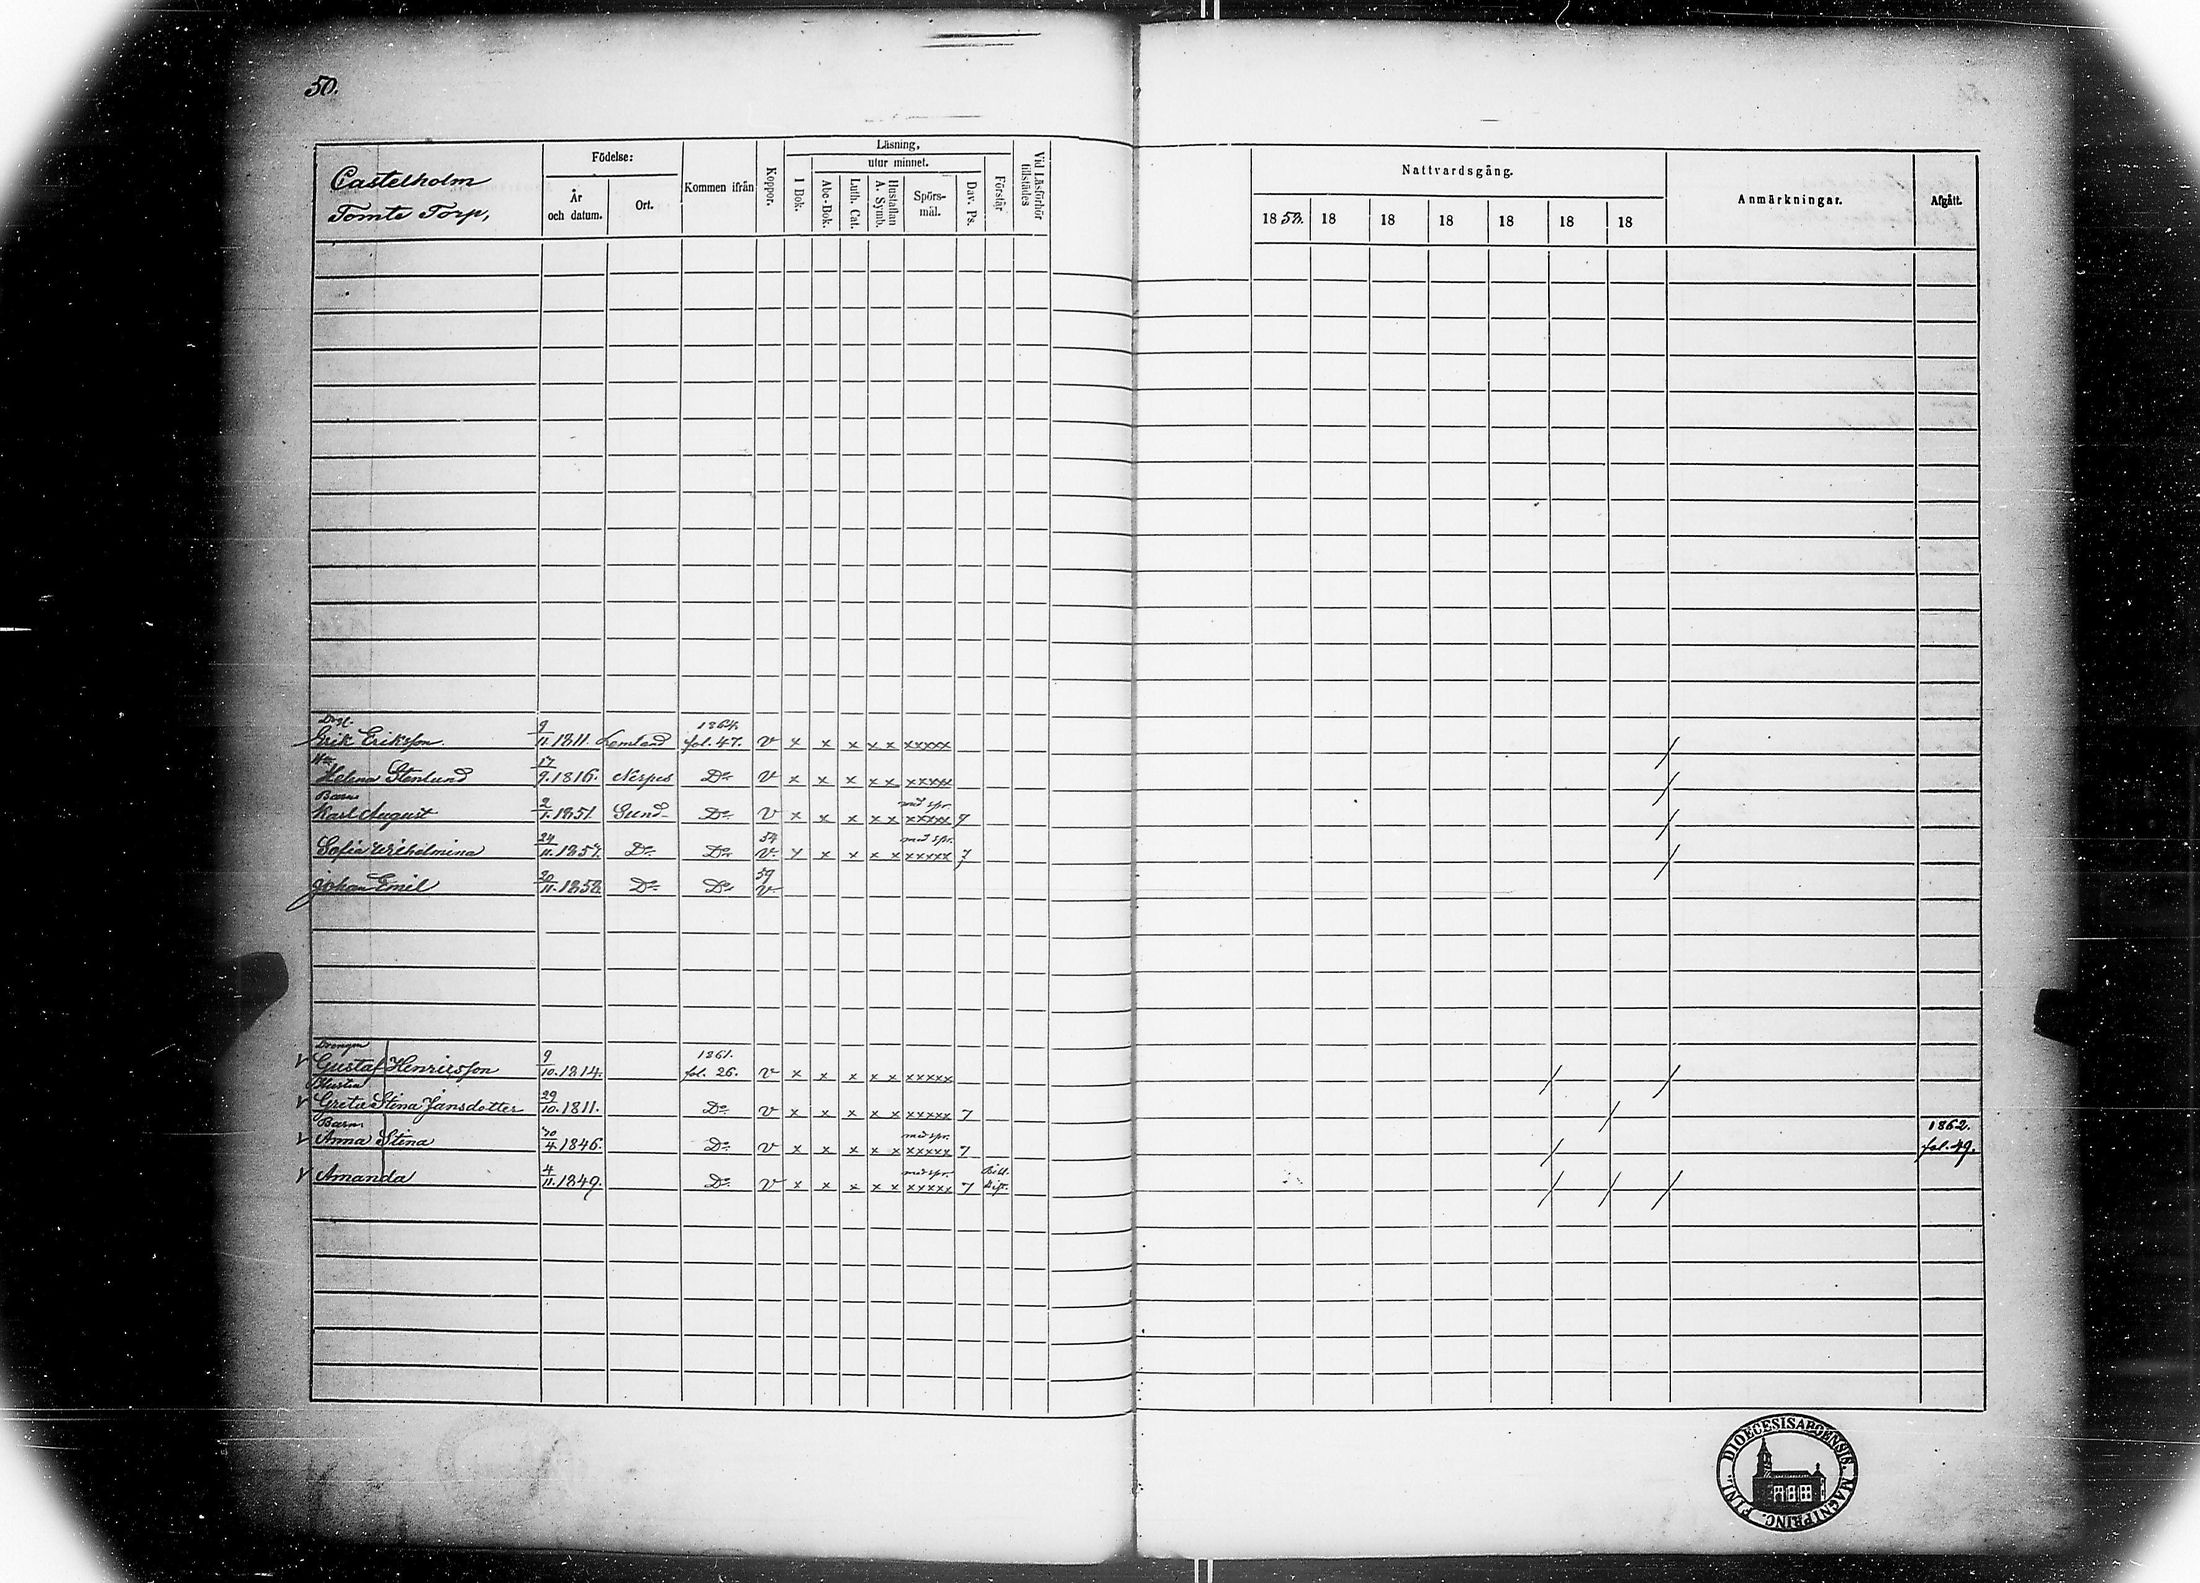 50.
Castelholm
Tomte Torp,
Födelse:
År och datum.
Ort.
Kommen ifrån
Koppor.
Läsning,
I Bok.
utur minnet.
Abc-Bok.
Luth. Cat.
Hustaflan A. Symb.
Spörs-mål.
Dav. Ps.
Förstår
Vid Läsförhör tillstädes
Nattvardsgång.
1858. 18 18 18 18 18 18
Anmärkningar.
Afgått.
1864.
Erik Eriksson. 9/11.1811. Lemland fol. 47. v x x x x x xxxxx
Helena Stenlund 17/9.1816. Nerpes Do v x x x x x xxxxx
Barn med spr.
Karl August 2/1.1851 Sund Do v x x x x x xxxxx 7
54 med spr.
Sofia Wilhelmina 24/11.1854. Do Do v. x x x x x xxxxx 7
59
Johan Emil 20/11.1858 Do Do v
Drengen 1861.
v Gustaf Henriksson 9/10.1814. fol. 26. v x x x x x xxxxx
Hustru
v Greta Stina Jansdotter 29/10.1811. Do v x x x x x xxxxx 7
Barn med spr. 1862.
v Anna Stina /4.1846. Do v x x x x x xxxxx 7 fol. 49.
med spr.
v Amanda 4/11.1849. Do v x x x x x xxxxx 7
DIOECESIS ABOENSIS. MAGNI PRINC. FINL.